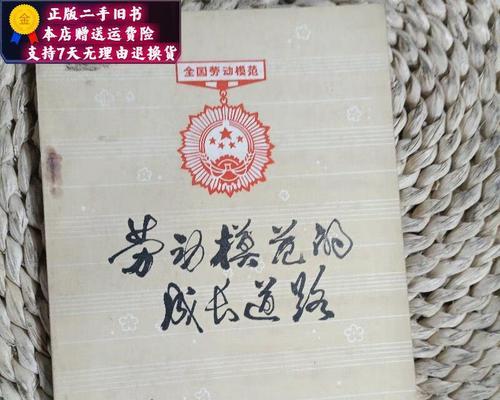 金
正版二手旧书
本店赠送运费险
支持7天无理由退换货
全国劳动模范
劳动模范的
成长道路